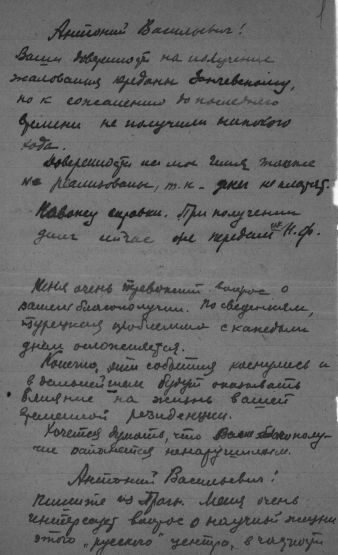 1
Антоний Васильевич!
Ваши доверенности на получение
жалования переданы Зенчевскому,
но к сожалению до последнего
времени не получили никакого
хода.
Доверенности на мое имя также
не реализованы, т.к. – денег не платят.
Навожу справки. При получении
денег сейчас же передам Н.Ф.
Меня очень тревожит вопрос о
вашем благополучии. По сведениям,
турецкая проблема с каждым
днем осложняется.
Конечно, эти события коснулись и
в дальнейшем будут оказывать
влияние на жизнь вашей
временной резиденции.
Хочется думать, что Ваше благополу-
чие останется ненарушимым.
Антоний Васильевич!
Пишите из Праги. Меня очень
интересует вопрос о научной жизни
этого "русского" центра, в частности